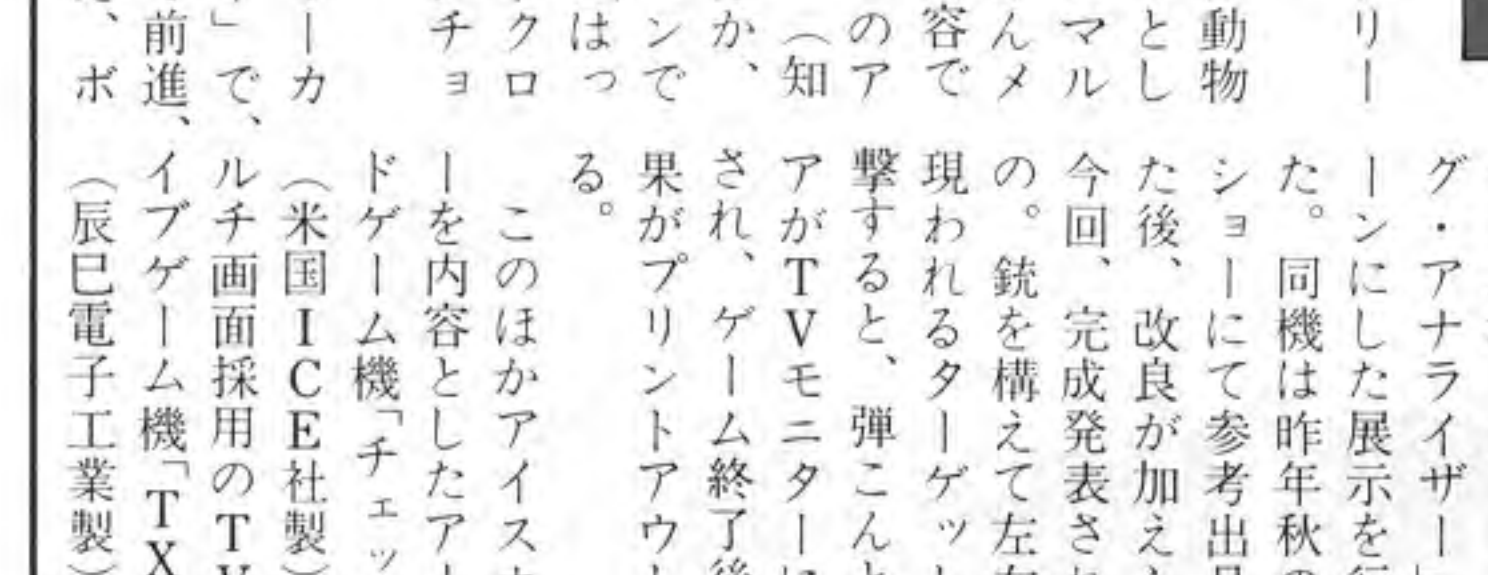 リー
動物
とし
マル
んメ
容で
のア
（知
か、
ンで
はっ
クロ
チョ
ーカ
」で、
前進、
、ボ
グ・アナライザー
ーンにした展示を行
た。同機は昨年秋の
ショーにて参考出品
た後、改良が加え
今回、完成発表さ
の。銃を構えて左右
現われるターゲッ
撃すると、弾こんと
アがTVモニターに
され、ゲーム終了後
果がプリントアウ
る。
このほかアイス
ーを内容としたアー
ドゲーム機「チェッ
（米国ICE社製）
ルチ画面採用のTV
イブゲーム機「TX
（辰巳電子工業製）